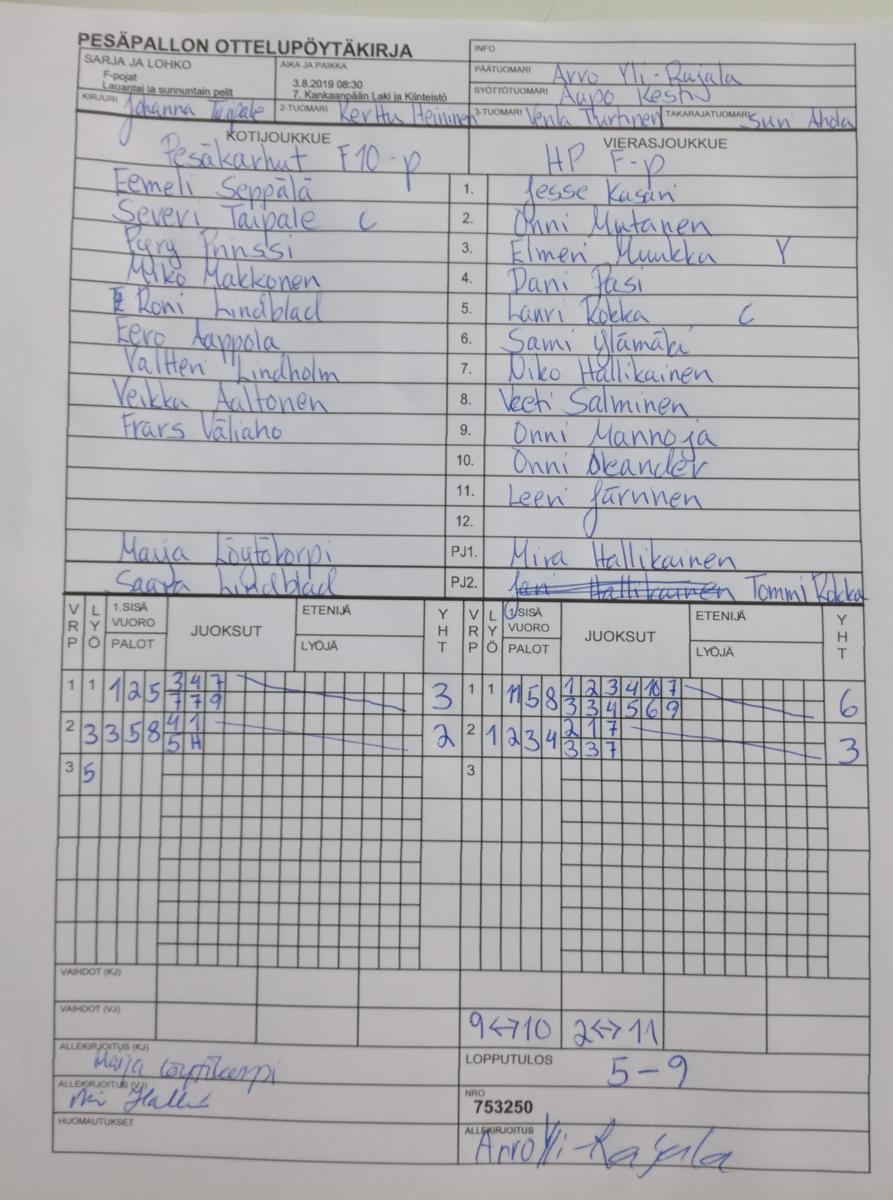 PESÄPALLON OTTELUPÖYTÄKIRJA
INFO
SARJA JA LOHKO
F-pojat
Lauantai ja sunnuntain pelit
AIKA JA PAIKKA
3.8.2019 08:30
7. Kankaanpään Laki ja Kiinteistö
PÄÄTUOMARI Arvo Yli-Rajala
SYÖTTÖTUOMARI Aapo
KIRJURI Johanna Taipale 2-TUOMARI Kerttu Heininen 3-TUOMARI Venla Turtinen TAKARAJATUOMARI Suri Ahola
KOTIJOUKKUE VIERASJOUKKUE
Pesäkarhut F10-p HP F-p
Eemeli Seppälä 1. Jesse Kasari
Severi Taipale C 2. Onni Mutanen
Pyry Prinssi 3. Elmeri Muukka Y
Miko Makkonen 4. Dani Pasi
Roni Lindblad 5. Lauri Rokka C
Eero Aappola 6. Sami Ylämäki
Valtteri Lindholm 7. Niko Hallikainen
Veikka Aaltonen 8. Veeti Salminen
Frans Väliaho 9. Onni Mannoja
10. Onni Okander
11. Leevi Järvinen
12.
Marja Löytökorpi PJ1. Mira Hallikainen
Saara Lindblad PJ2. Jani Hallikainen Tommi Rokka
VRP LYÖ 1.SISÄ VUORO PALOT JUOKSUT ETENIJÄ LYÖJÄ YHT VRP LYÖ 1.SISÄ VUORO PALOT JUOKSUT ETENIJÄ LYÖJÄ YHT
1 1 1 2 5 3 4 7 3 1 1 11 5 8 1 2 3 4 10 7 6
7 7 9 3 3 4 5 6 9
2 3 3 5 8 4 1 2 2 1 2 3 4 2 1 7 3
5 H 3 3 7
3 5 3
VAIHDOT (KJ)
VAIHDOT (VJ) 9↔10 2↔11
ALLEKIRJOITUS (KJ) Marja Löytökorpi
LOPPUTULOS 5-9
ALLEKIRJOITUS (VJ)
NRO
753250
HUOMAUTUKSET
ALLEKIRJOITUS Arvo Yli-Rajala